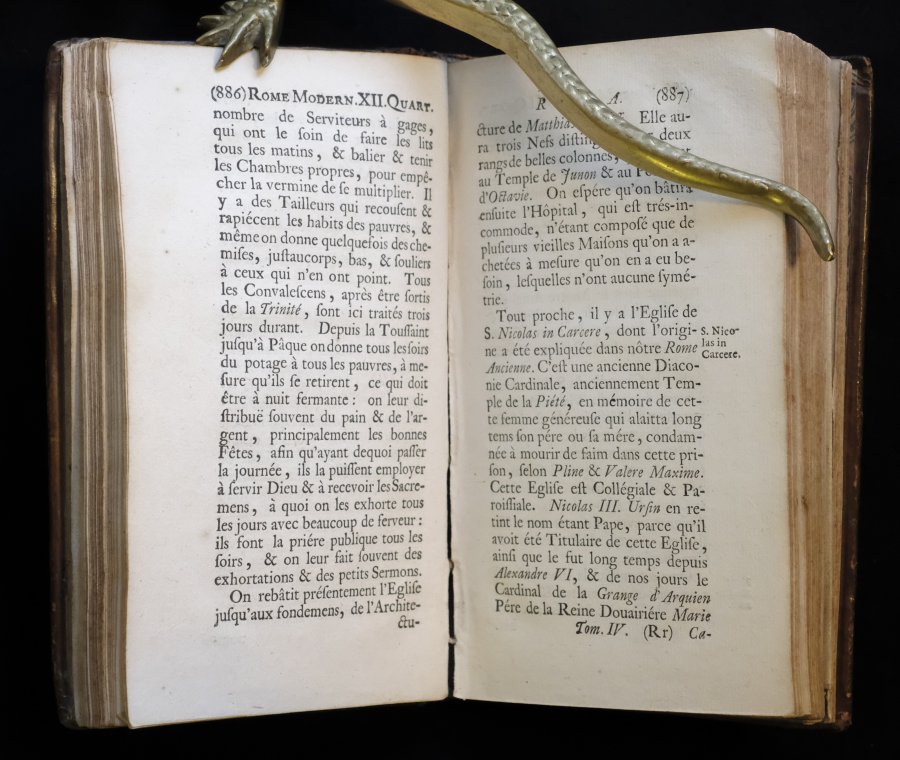 (886) ROME MODERN. XII. QUART.
nombre de Serviteurs à gages,
qui ont le ſoin de faire les lits
tous les matins, & balier & tenir
les Chambres propres, pour empê-
cher la vermine de ſe multiplier. Il
y a des Tailleurs qui recouſent &
rapiécent les habits des pauvres, &
même on donne quelquefois des che-
miſes, juſtaucorps, bas, & ſouliers
à ceux qui n'en ont point. Tous
les Convaleſcens, après être ſortis
de la Trinité, ſont ici traités trois
jours durant. Depuis la Touſſaint
juſqu'à Pâque on donne tous les ſoirs
du potage à tous les pauvres, à me-
ſure qu'ils ſe retirent, ce qui doit
être à nuit fermante: on leur di-
ſtribuë ſouvent du pain & de l'ar-
gent, principalement les bonnes
Fêtes, afin qu'ayant dequoi paſſer
la journée, ils la puiſſent employer
à ſervir Dieu & à recevoir les Sacre-
mens, à quoi on les exhorte tous
les jours avec beaucoup de ferveur:
ils font la priére publique tous les
ſoirs, & on leur fait ſouvent des
exhortations & des petits Sermons.
On rebâtit préſentement l'Egliſe
juſqu'aux fondemens, de l'Archite-
ctu-
R A. (887)
cture de Matthias Elle au-
ra trois Nefs diſting deux
rangs de belles colonnes,
au Temple de Junon & au
d'Octavie. On eſpére qu'on bâtira
enſuite l'Hôpital, qui eſt trés-in-
commode, n'étant compoſé que de
pluſieurs vieilles Maiſons qu'on a a-
chetées à meſure qu'on en a eu be-
ſoin, leſquelles n'ont aucune ſymé-
trie.
Tout proche, il y a l'Egliſe de
S. Nicolas in Carcere, dont l'origi-
ne a été expliquée dans nôtre Rome
Ancienne. C'eſt une ancienne Diaco-
nie Cardinale, anciennement Tem-
ple de la Piété, en mémoire de cet-
te femme généreuſe qui alaitta long
tems ſon pére ou ſa mére, condam-
née à mourir de faim dans cette pri-
ſon, ſelon Pline & Valere Maxime.
Cette Egliſe eſt Collégiale & Pa-
roiſſiale. Nicolas III. Urſin en re-
tint le nom étant Pape, parce qu'il
avoit été Titulaire de cette Egliſe,
ainſi que le fut long temps depuis
Alexandre VI, & de nos jours le
Cardinal de la Grange d'Arquien
Pére de la Reine Douairiére Marie
Tom. IV. (Rr) Ca-
S. Nico-
las in
Carcere.